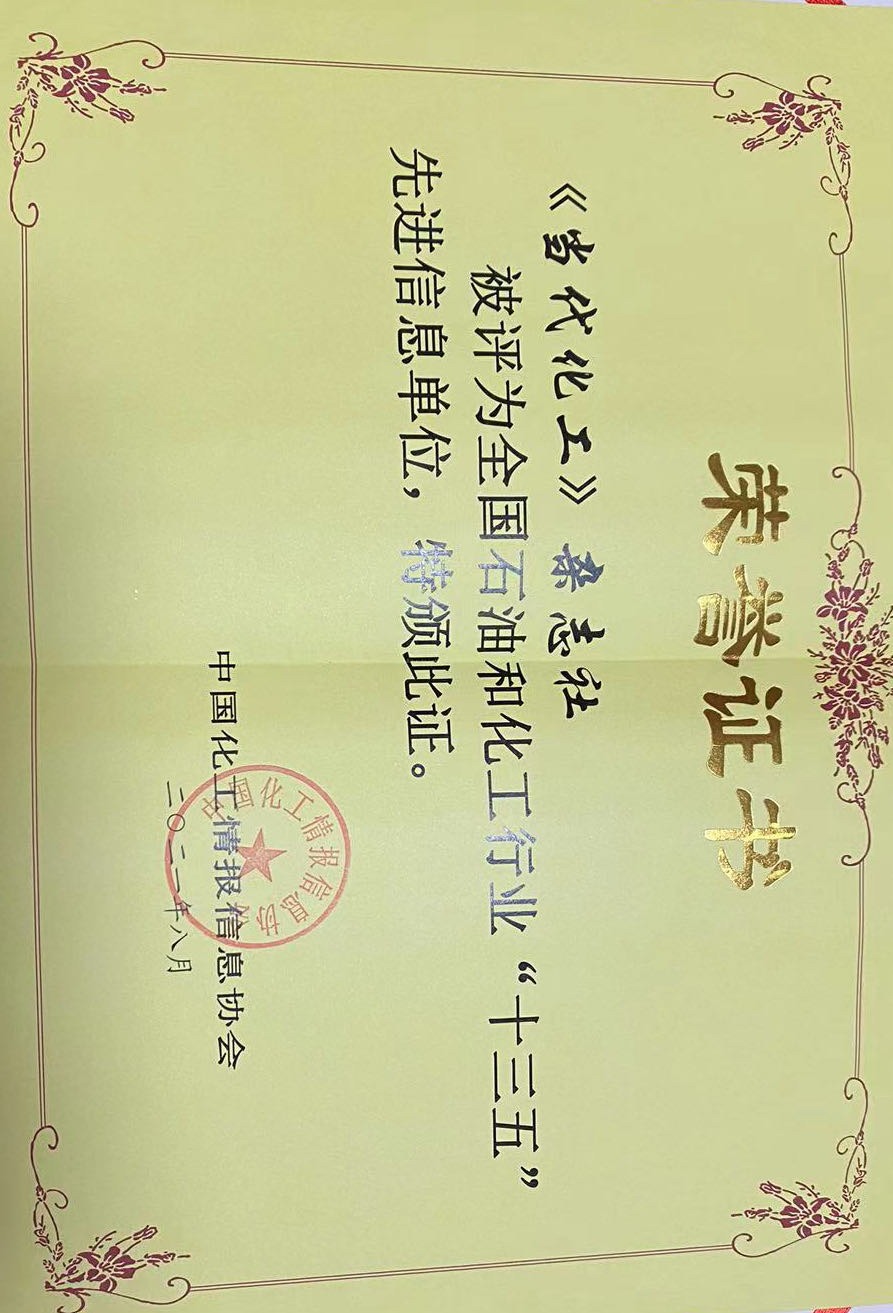 荣誉证书
《当代化工》杂志社
被评为全国石油和化工行业“十三五”
先进信息单位，特颁此证。
中国化工情报信息协会
二〇二一年八月
中国化工情报信息协